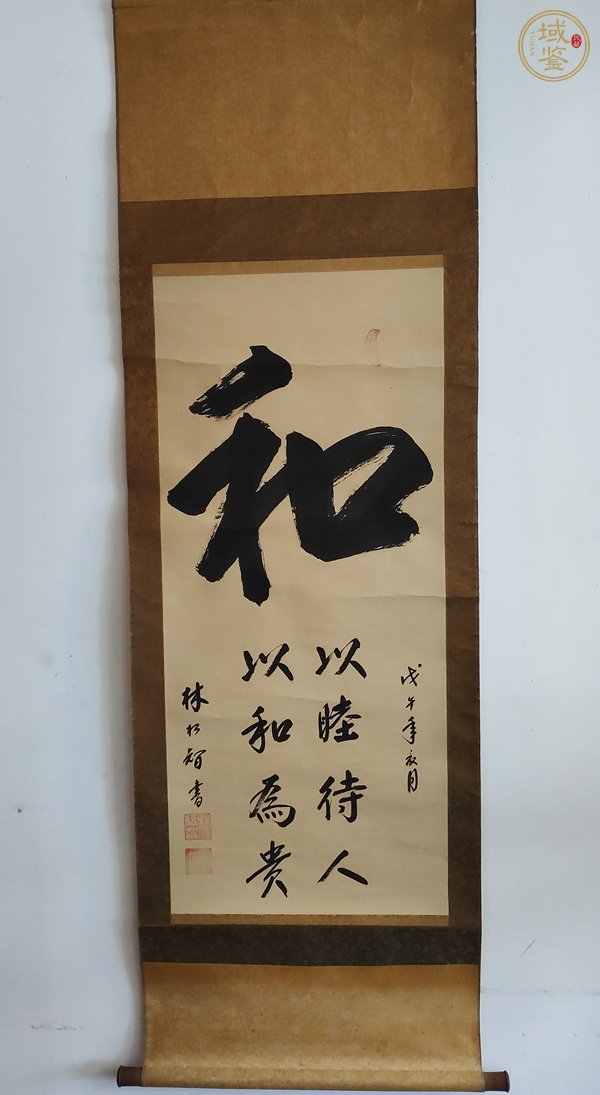 和
戊午年亥月
以睦待人
以和為貴
林松智書
域鉴
YUJIAN